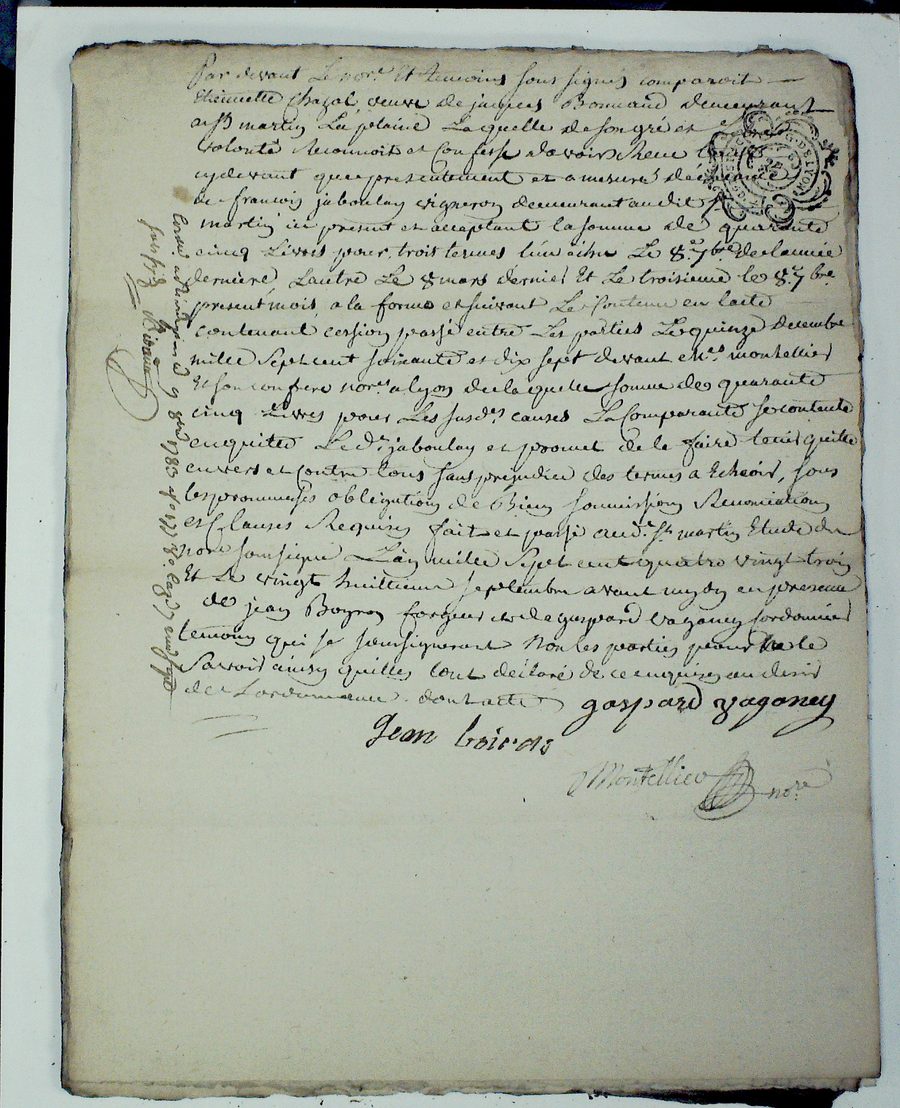 Par devant le nore. Et temoins sous signés comparoit
Etiennette Chazal veuve de jacques Bonnand demeurant
a St martin La plaine Laquelle de son gré et
volonté Reconnoit et Confesse davoir Reçu
cy devant que presentement et a mesure
de francois jaboulay vigneron demeurant audit St
martin ici present et acceptant la somme de quarante
cinq Livres pour trois termes lun echu Le 8e. 7bre. de lannée
derniere, Lautre Le 8 mars dernier Et Le troisieme le 8e. 7bre.
present mois, a la forme et suivant Le Contenu en lacte
contenant cession passé entre Les parties Le quinze decembre
mille Sept cent soixante et dix sept devant Me. montellier
Et son confrere nores. a lyon de laquelle somme de quarante
cinq Livres pour Les susdes. causes La Comparante se contente
en quitte Le dt. jaboulay et promet de le faire tenir quitte
envers et Contre tous sans prejudice des termes a Echeoir, sous
les promesses obligations de Biens soumissions Renonciations
et Clauses Requises fait et passé audt. St. martin Etude du
nore soussigné Lan mille Sept cent quatre vingt trois
Et Le vingt huittieme septembre avant midy en presence
de jean Boyron forgeur et de gaspard Vaganey cordonnier
temoins qui se soussigneront non les parties pour ne le
Savoir ainsy quelles lont déclaré de ce enquises au desir
de Lordonnance dont acte
gaspard vaganey
jean boiron
Montellier nore
G. DE LYON